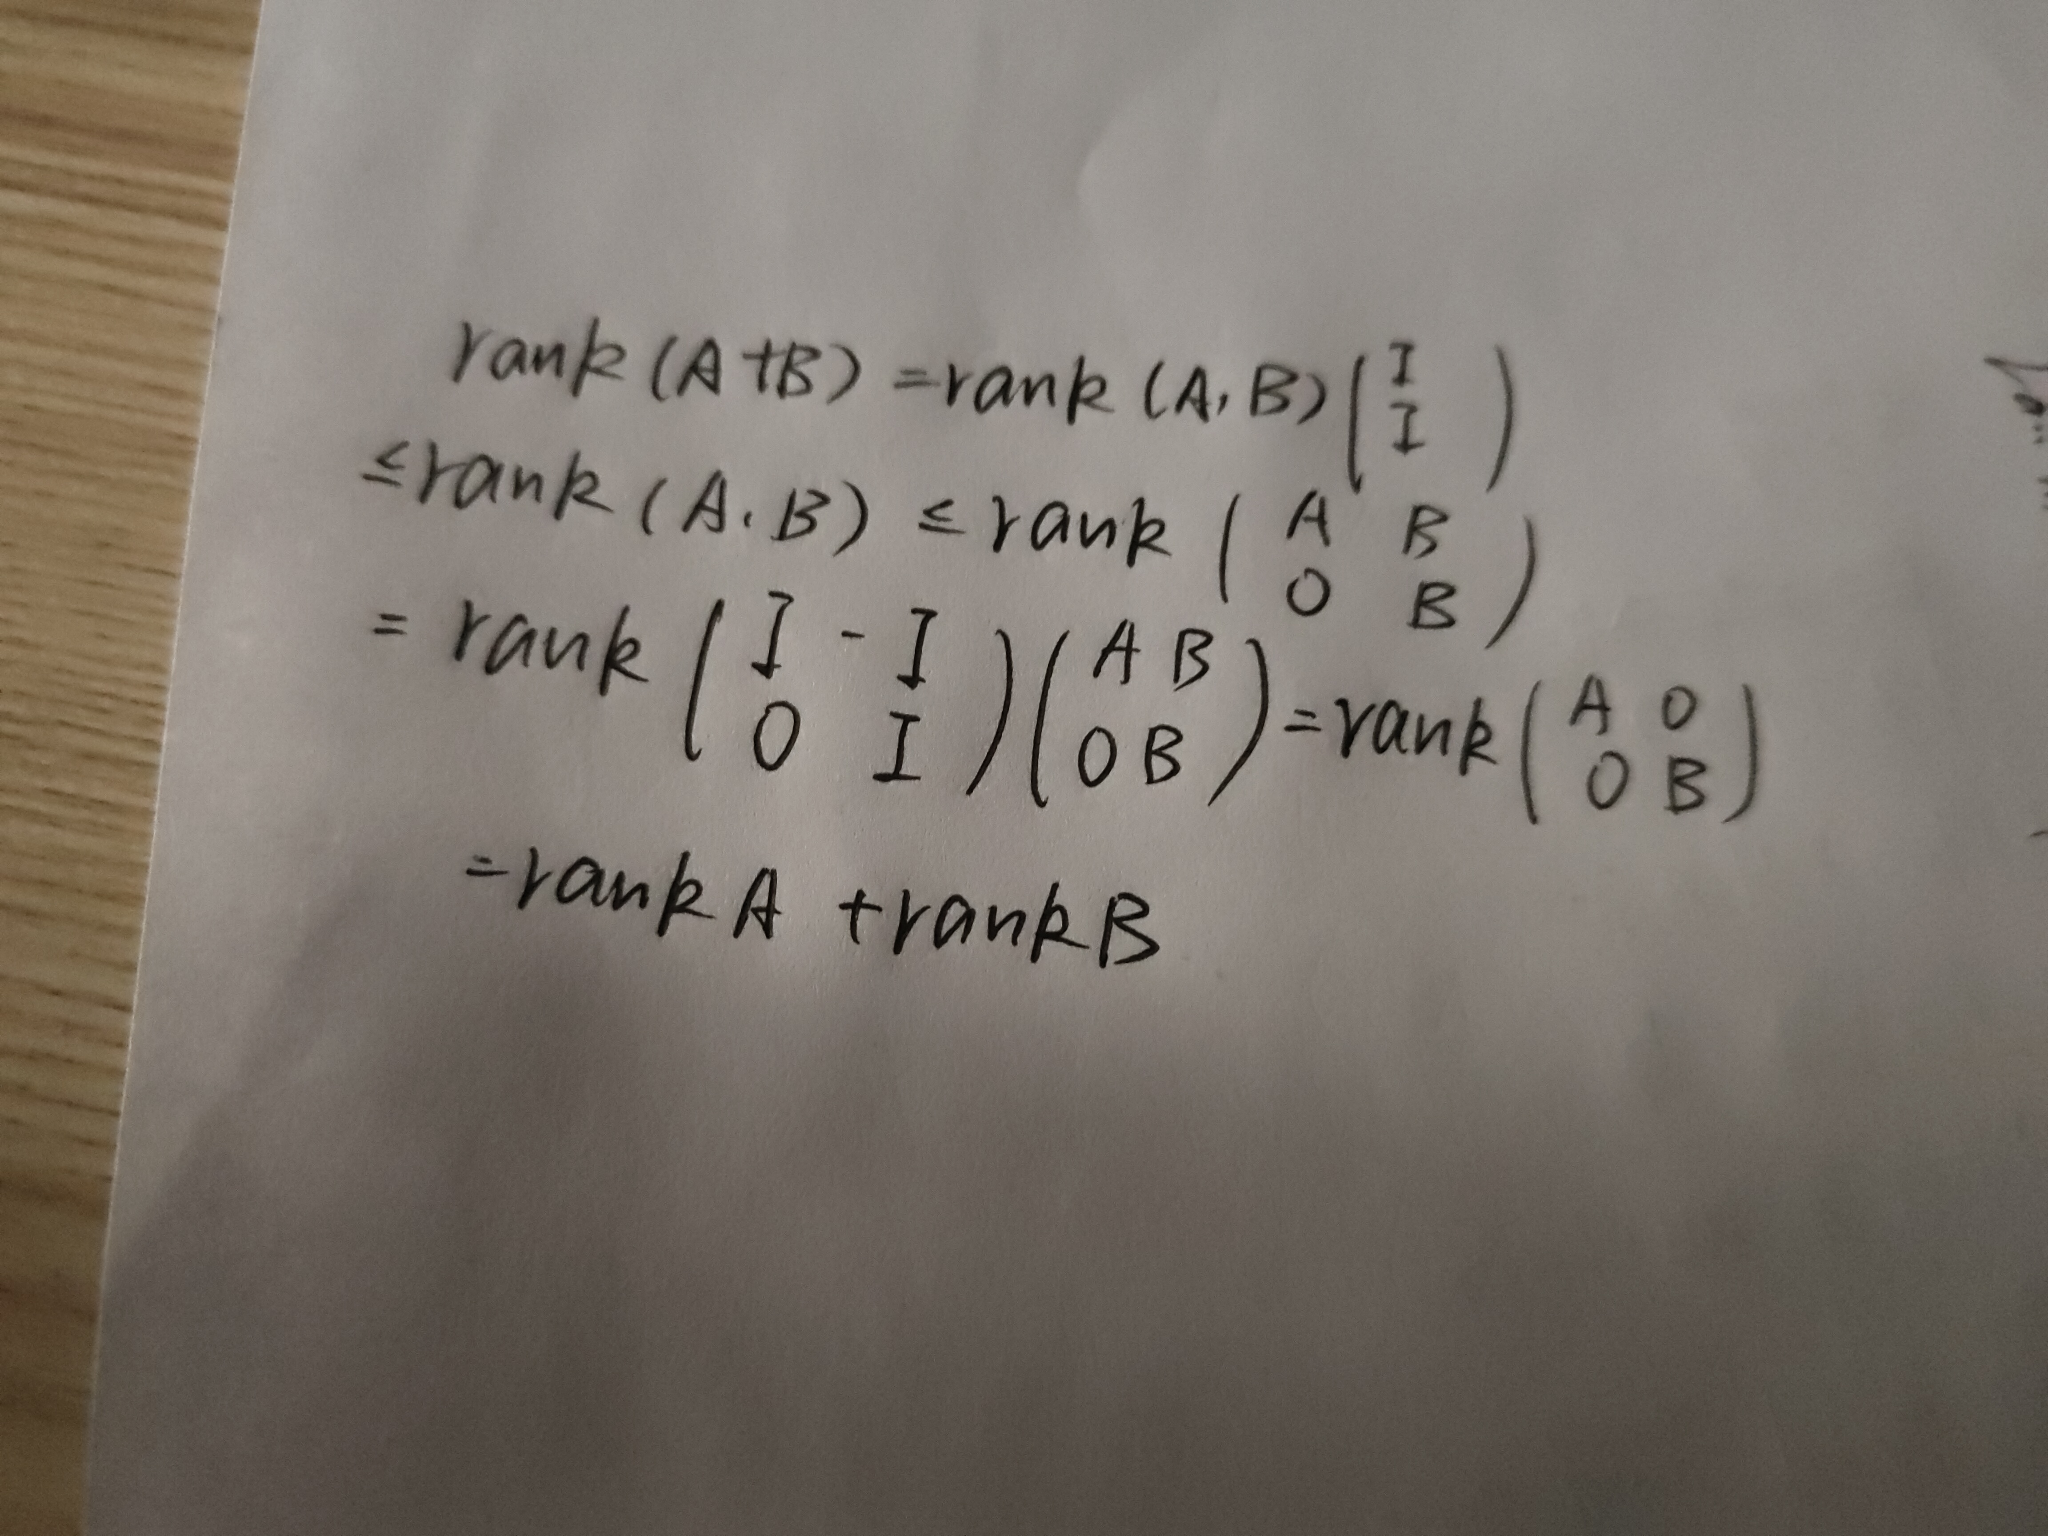 rank (A+B) = rank (A, B) ( I
I )
≤ rank (A, B) ≤ rank ( A B
O B )
= rank ( I -I
O I ) ( A B
O B ) = rank ( A O
O B )
= rank A + rank B